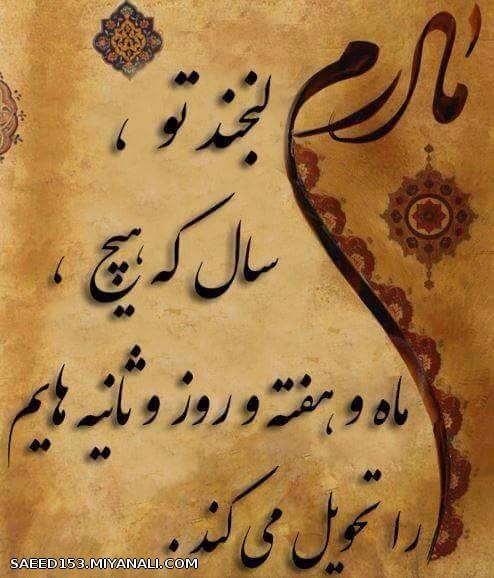 مادرم
لبخند تو ،
سال که هیچ ،
ماه و هفته و روز و ثانیه هایم
را تحویل می کند .
SAEED153.MIYANALI.COM